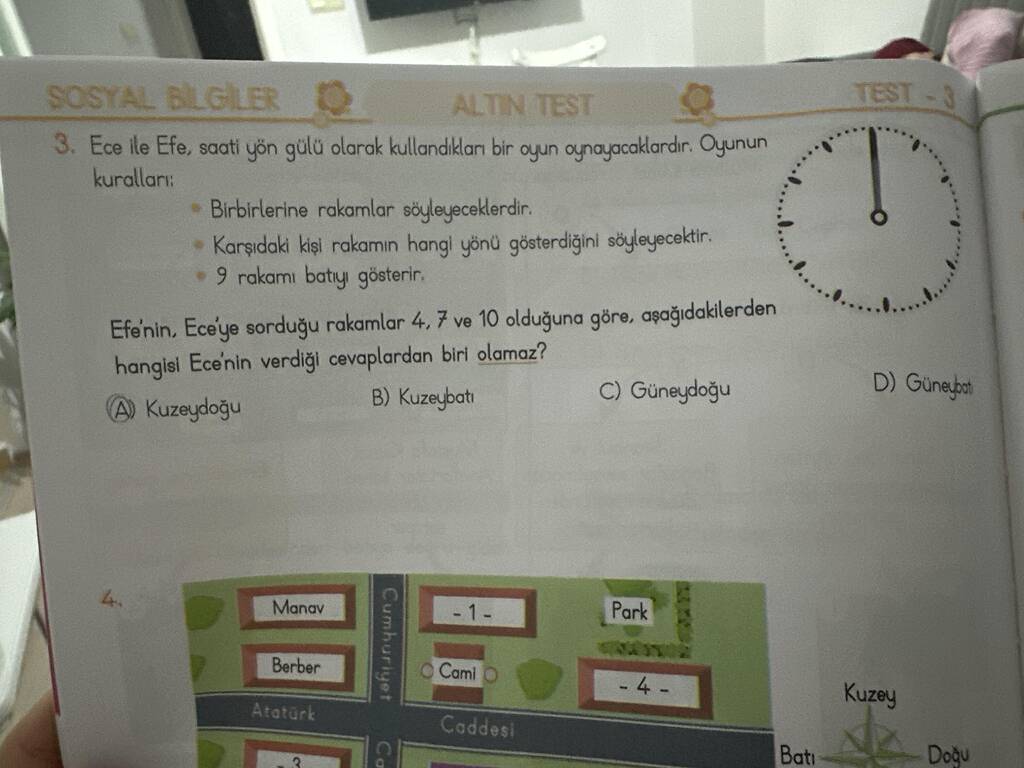 SOSYAL BİLGİLER
ALTIN TEST
TEST - 3
3. Ece ile Efe, saati yön gülü olarak kullandıkları bir oyun oynayacaklardır. Oyunun
kuralları:
• Birbirlerine rakamlar söyleyeceklerdir.
• Karşıdaki kişi rakamın hangi yönü gösterdiğini söyleyecektir.
• 9 rakamı batıyı gösterir.
Efe'nin, Ece'ye sorduğu rakamlar 4, 7 ve 10 olduğuna göre, aşağıdakilerden
hangisi Ece'nin verdiği cevaplardan biri olamaz?
A) Kuzeydoğu
B) Kuzeybatı
C) Güneydoğu
D) Güneybatı
4.
Manav
Cumhuriyet
- 1 -
Park
Berber
Cami
- 4 -
Atatürk
Caddesi
- 3
Kuzey
Batı
Doğu